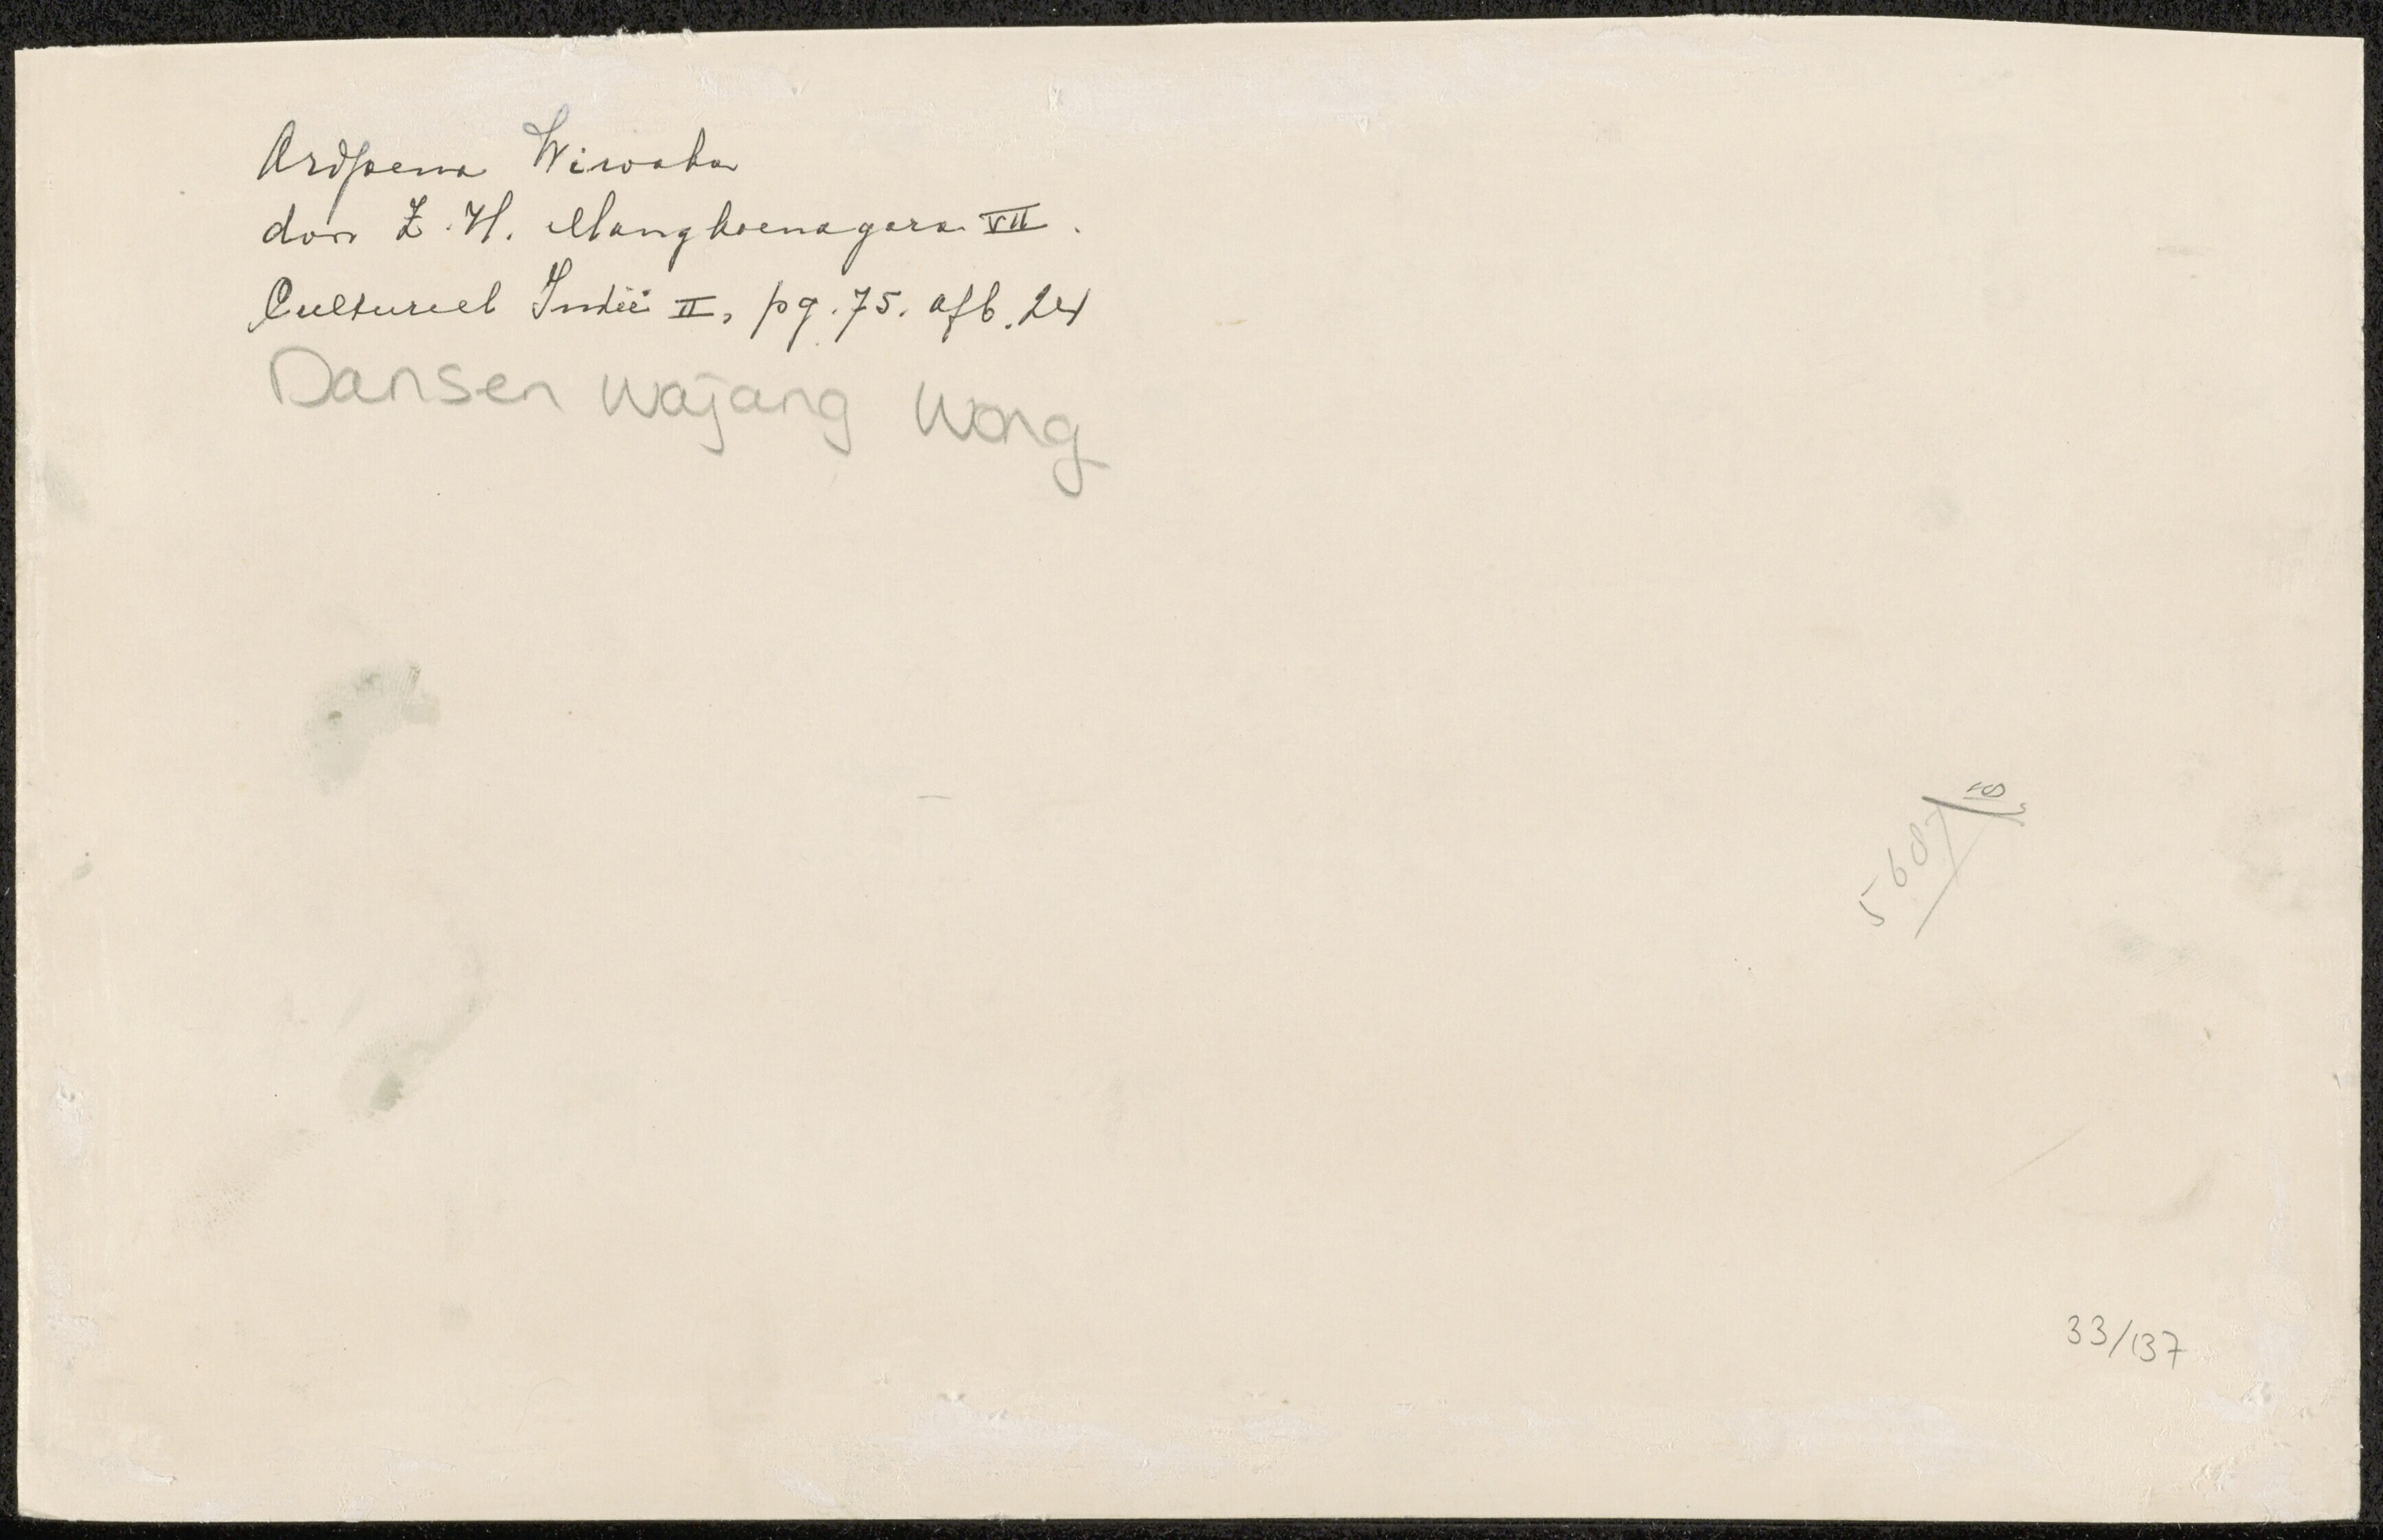 Ardjoena Wiwaha
door Z.H. Mangkoenagara VII.
Cultureel Indië II, pg. 75. afb. 24
Dansen wajang wong
5687
33/137